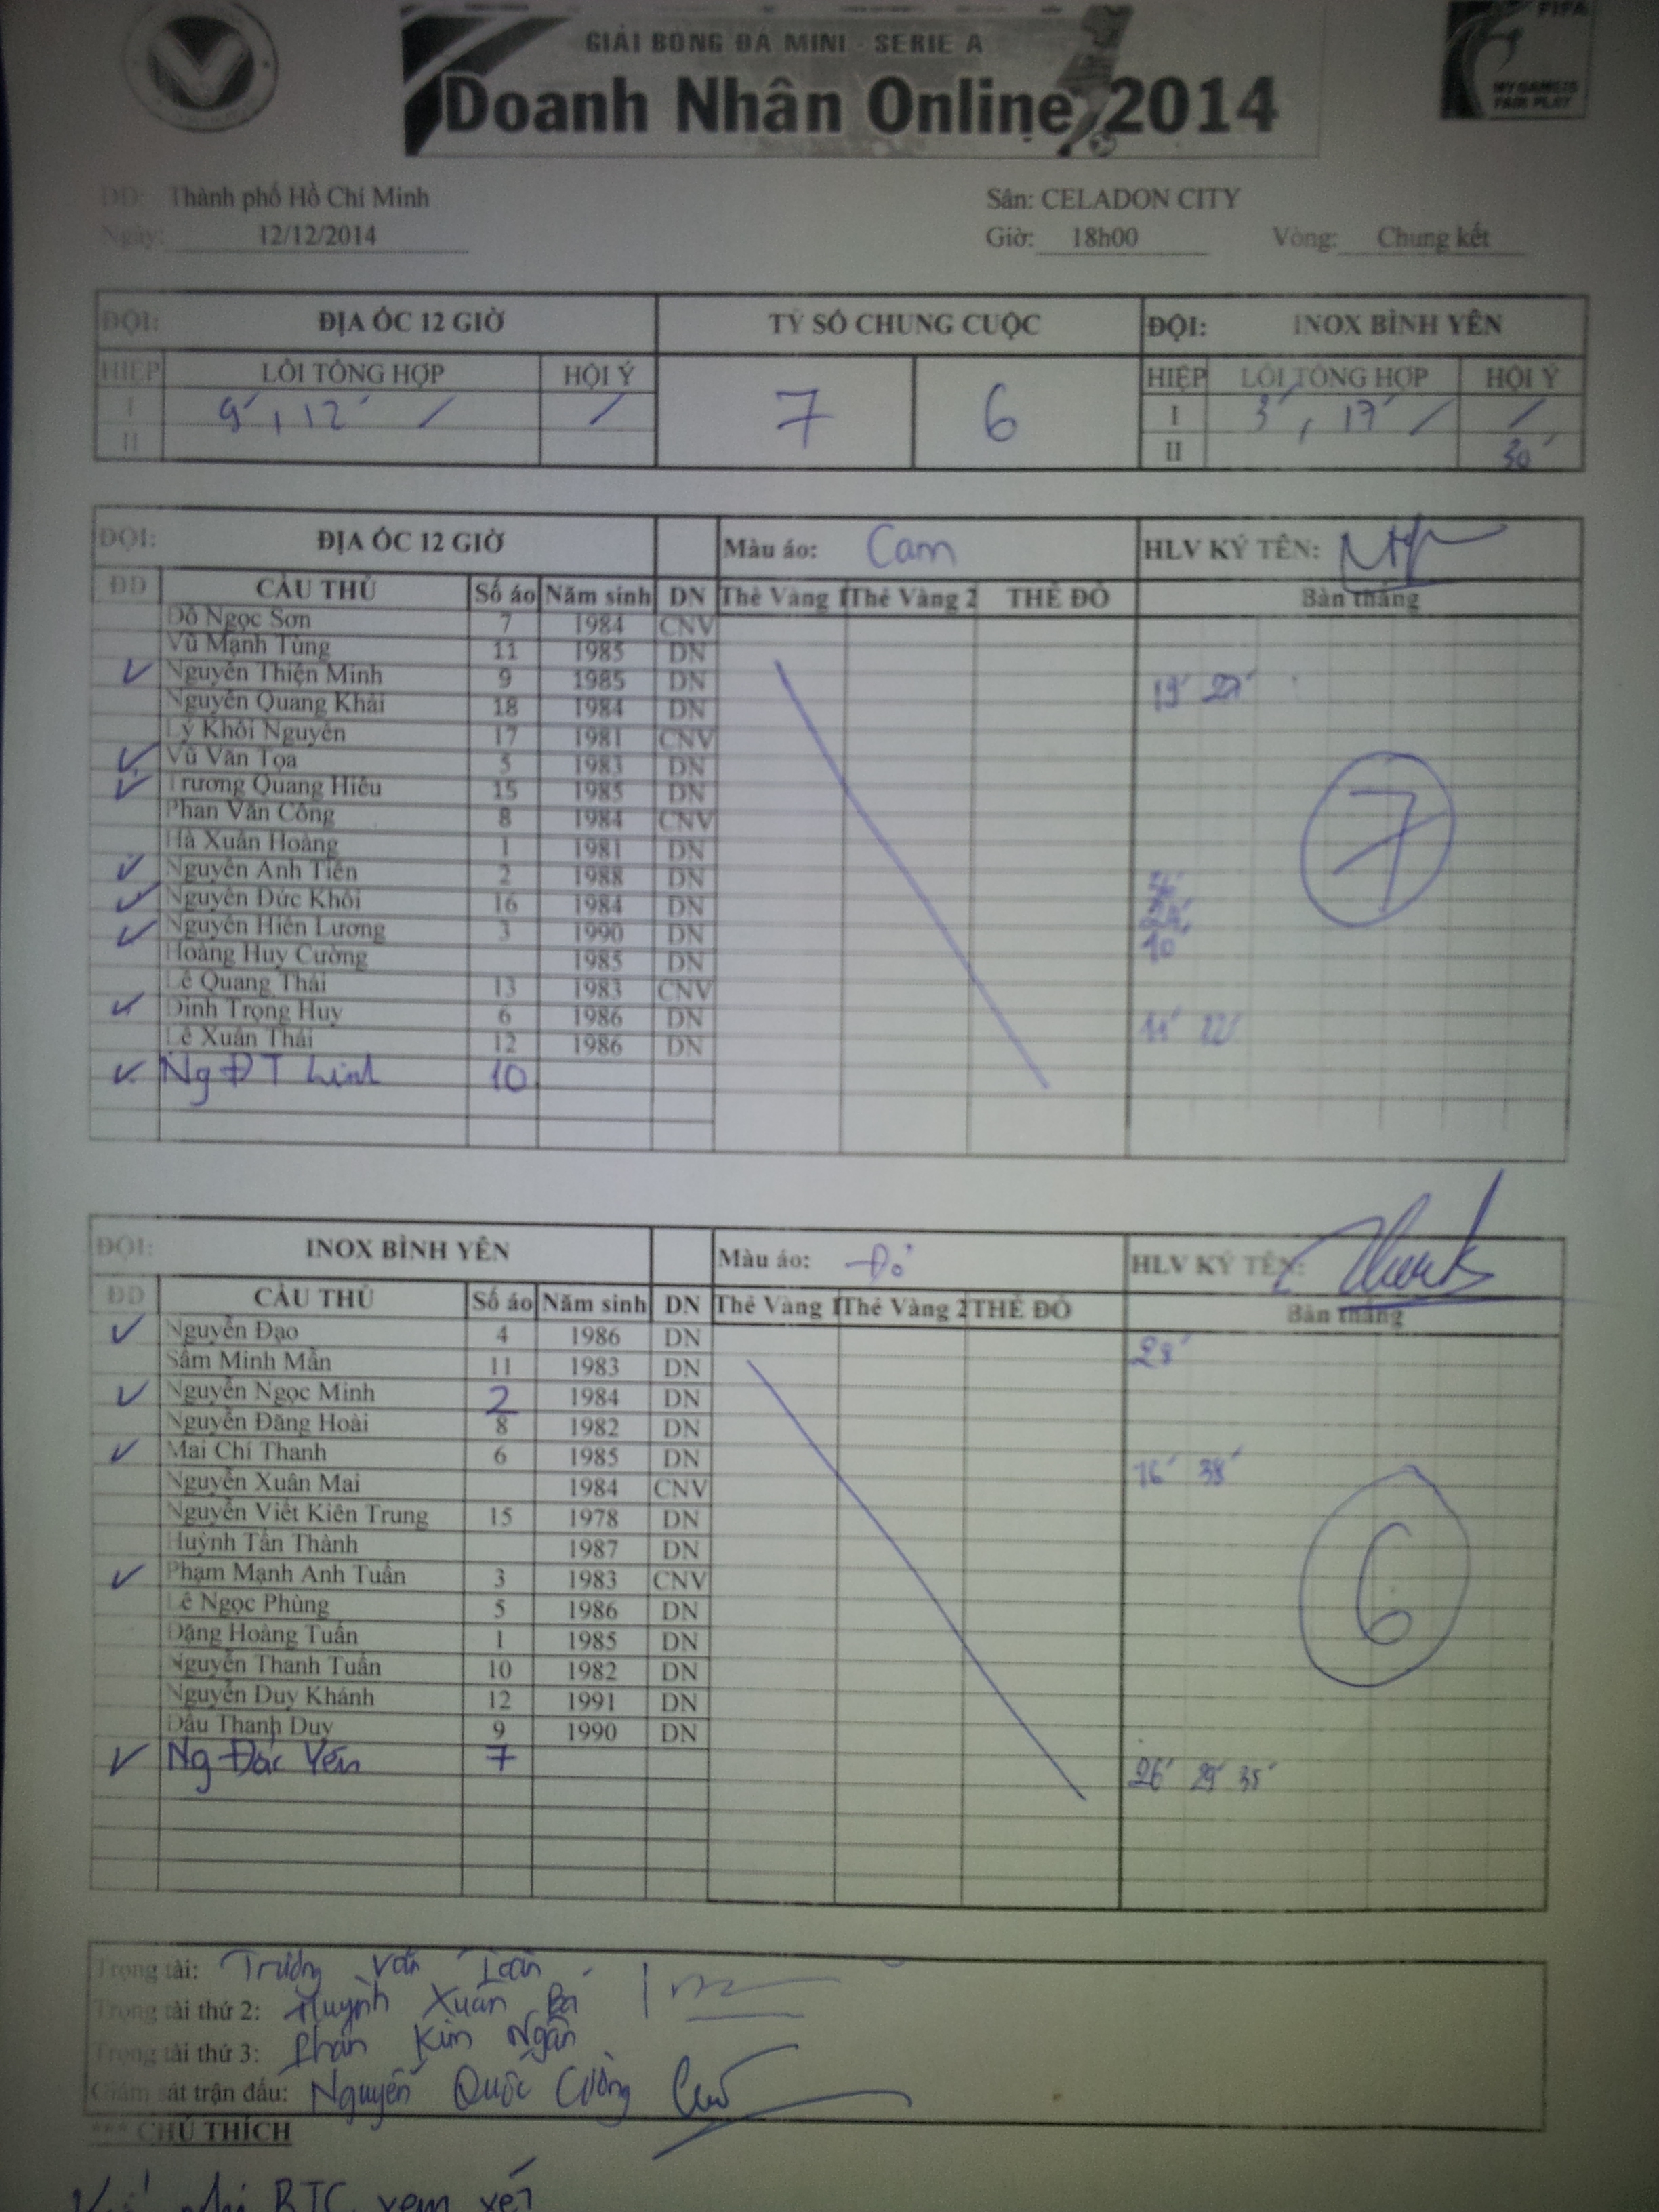 GIẢI BÓNG ĐÁ MINI - SERIE A
Doanh Nhân Online 2014
FIFA
MY GAME IS
FAIR PLAY
DĐ: Thành phố Hồ Chí Minh
Sân: CELADON CITY
Ngày: 12/12/2014
Giờ: 18h00 Vòng: Chung kết
ĐỘI: ĐỊA ỐC 12 GIỜ TỶ SỐ CHUNG CUỘC ĐỘI: INOX BÌNH YÊN
HIỆP LỖI TỔNG HỢP HỘI Ý 7 6 HIỆP LỖI TỔNG HỢP HỘI Ý
I 9', 12' / / I 3', 17' / /
II II 30'
ĐỘI: ĐỊA ỐC 12 GIỜ Màu áo: Cam HLV KÝ TÊN:
ĐD CẦU THỦ Số áo Năm sinh DN Thẻ Vàng 1 Thẻ Vàng 2 THẺ ĐỎ Bàn thắng
Đỗ Ngọc Sơn 7 1984 CNV
Vũ Mạnh Tùng 11 1985 DN
✓ Nguyễn Thiện Minh 9 1985 DN 19' 27'
Nguyễn Quang Khải 18 1984 DN
Lý Khôi Nguyên 17 1981 CNV
✓ Vũ Văn Tọa 5 1983 DN
✓ Trương Quang Hiếu 15 1985 DN
Phan Văn Công 8 1984 CNV
7
Hà Xuân Hoàng 1 1981 DN
✓ Nguyễn Anh Tiến 2 1988 DN
✓ Nguyễn Đức Khôi 16 1984 DN
✓ Nguyễn Hiền Lương 3 1990 DN 10'
Hoàng Huy Cường 1985 DN
Lê Quang Thái 13 1983 CNV
✓ Đinh Trọng Huy 6 1986 DN 22'
Lê Xuân Thái 12 1986 DN
✓ Ng ĐT Linh 10
ĐỘI: INOX BÌNH YÊN Màu áo: Đỏ HLV KÝ TÊN:
ĐD CẦU THỦ Số áo Năm sinh DN Thẻ Vàng 1 Thẻ Vàng 2 THẺ ĐỎ Bàn thắng
✓ Nguyễn Đạo 4 1986 DN 28'
Sầm Minh Mẫn 11 1983 DN
✓ Nguyễn Ngọc Minh 2 1984 DN
Nguyễn Đăng Hoài 8 1982 DN
✓ Mai Chí Thanh 6 1985 DN 16' 38'
Nguyễn Xuân Mai 1984 CNV
Nguyễn Viết Kiên Trung 15 1978 DN
Huỳnh Tấn Thành 1987 DN
✓ Phạm Mạnh Anh Tuấn 3 1983 CNV
6
Lê Ngọc Phùng 5 1986 DN
Đặng Hoàng Tuấn 1 1985 DN
Nguyễn Thanh Tuấn 10 1982 DN
Nguyễn Duy Khánh 12 1991 DN
Đậu Thanh Duy 9 1990 DN
✓ Ng Đắc Yên 7 26' 29' 35'
Trọng tài: Trương Văn Toàn
Trọng tài thứ 2: Huỳnh Xuân Bá
Trọng tài thứ 3: Phan Kim Ngân
Giám sát trận đấu: Nguyễn Quốc Cường
*** CHÚ THÍCH
BTC xem xét